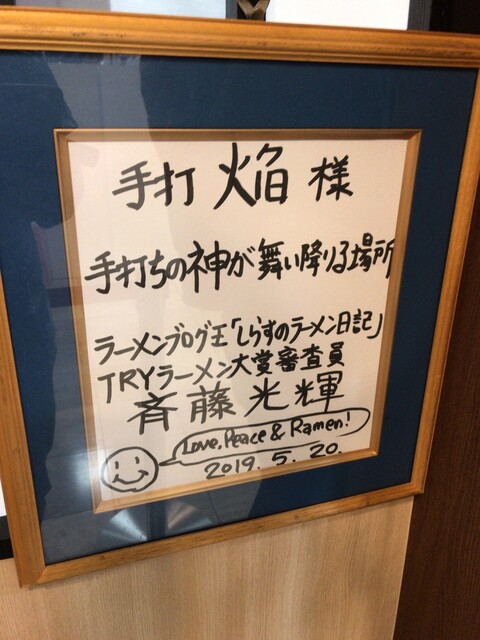 手打 焔 様
手打ちの神が舞い降りる場所
ラーメンブログ王「しらすのラーメン日記」
TRYラーメン大賞審査員
斉藤光輝
Love, Peace & Ramen!
2019. 5. 20.